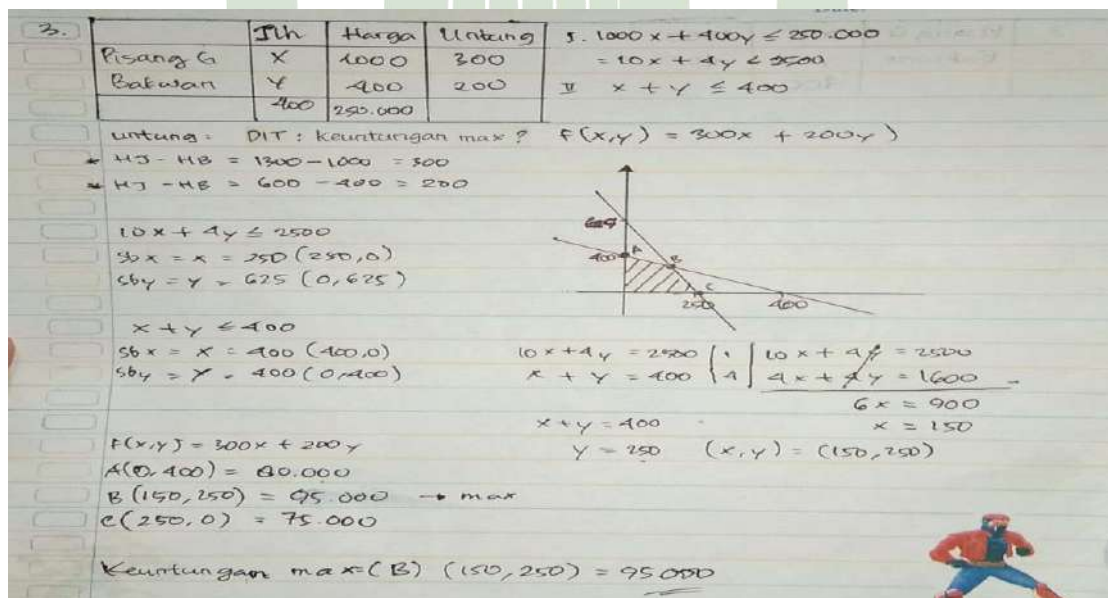 3.
Jlh Harga Untung
Pisang G X 1000 300
Bakwan Y 400 200
400 250.000
I. 1000x + 400y ≤ 250.000
= 10x + 4y ≤ 2500
II x + y ≤ 400
Untung: DIT: Keuntungan max? F(x,y) = 300x + 200y)
* HJ - HB = 1300 - 1000 = 300
* HJ - HB = 600 - 400 = 200
10x + 4y ≤ 2500
sbx = x = 250 (250,0)
sby = y = 625 (0,625)
x + y ≤ 400
sbx = x = 400 (400,0)
sby = y = 400 (0,400)
625
400 A
B
C
250 400
10x + 4y = 2500 | 1 | 10x + 4y = 2500
x + y = 400 | 4 | 4x + 4y = 1600 -
6x = 900
x = 150
x + y = 400
y = 250 (x,y) = (150,250)
F(x,y) = 300x + 200y
A(0,400) = 80.000
B(150,250) = 95.000 → max
C(250,0) = 75.000
Keuntungan max = (B) (150,250) = 95.000